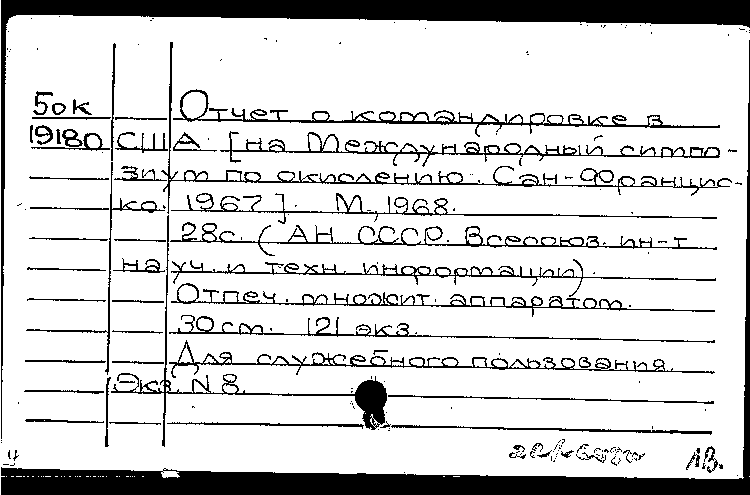 5ок Отчет о командировке в
19180 США [на Международный симпо-
зиум по окислению. Сан-Франциск-
ко. 1967]. М., 1968.
28с. (АН СССР. Всесоюз. ин-т
науч. и техн. информации).
Отпеч. множит. аппаратом.
30см. 121 экз.
Для служебного пользования.
Экз. N 8.
ЛВ.